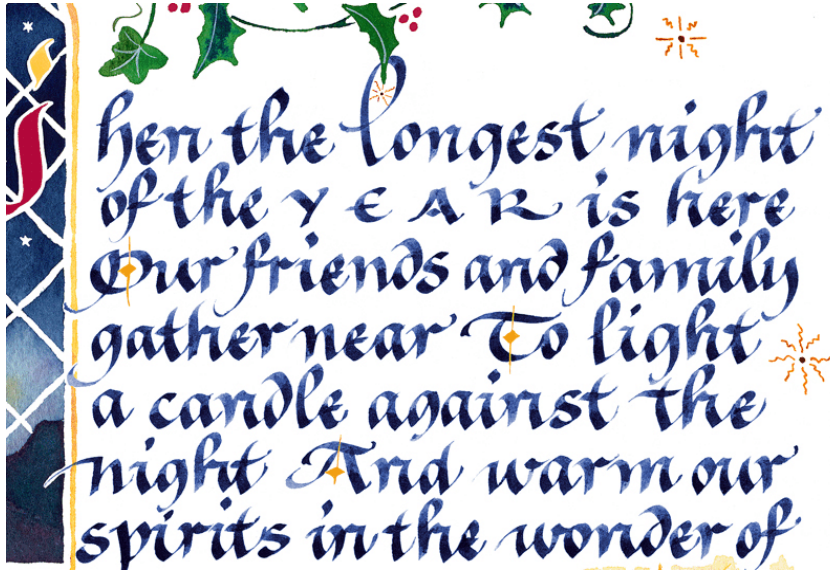 hen the longest night
of the YEAR is here
Our friends and family
gather near To light
a candle against the
night And warm our
spirits in the wonder of